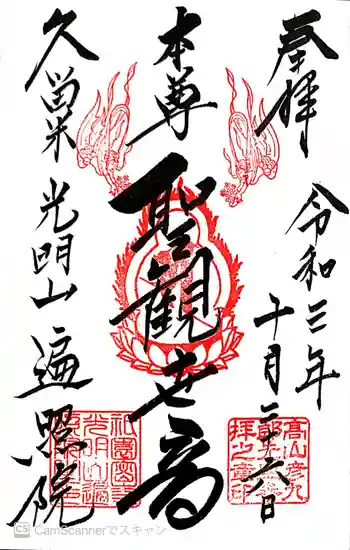 奉拝
令和三年
十月二十六日
本尊
聖観世音
久留米
光明山
遍照院
高山彦九
CS CamScannerでスキャン